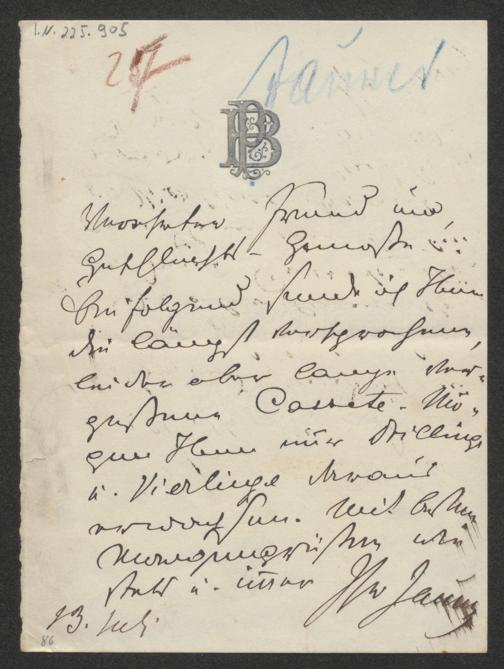 I.N. 225.905
27
PB
Verehrter Freund und
Geschlechts-Genosse
Beifolgend sende ich Ihnen
die längst versprochene,
leider aber lange ver-
gessene Cassete. Mö-
gen Ihnen nur Drillinge
u. Vierlinge daraus
erwachsen. Mit besten
Morgengrüßen wie
stets u. immer Ihr
13. Juli
86